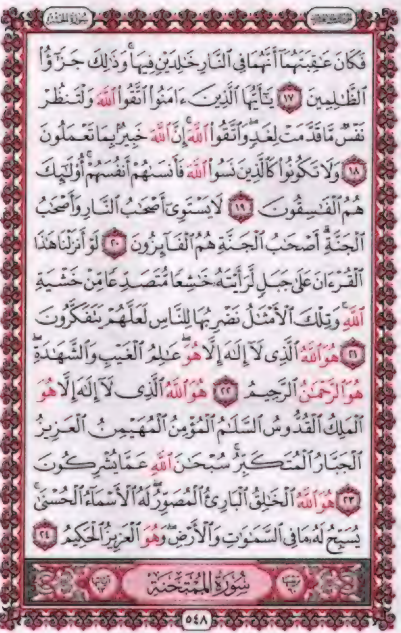 فَكَانَ عَٰقِبَتَهُمَآ أَنَّهُمَا فِى ٱلنَّارِ خَٰلِدَيْنِ فِيهَا ۚ وَذَٰلِكَ جَزَٰٓؤُا۟
ٱلظَّٰلِمِينَ ١٧ يَٰٓأَيُّهَا ٱلَّذِينَ ءَامَنُوا۟ ٱتَّقُوا۟ ٱللَّهَ وَلْتَنظُرْ
نَفْسٌ مَّا قَدَّمَتْ لِغَدٍ ۖ وَٱتَّقُوا۟ ٱللَّهَ ۚ إِنَّ ٱللَّهَ خَبِيرٌۢ بِمَا تَعْمَلُونَ
١٨ وَلَا تَكُونُوا۟ كَٱلَّذِينَ نَسُوا۟ ٱللَّهَ فَأَنسَىٰهُمْ أَنفُسَهُمْ ۚ أُو۟لَٰٓئِكَ
هُمُ ٱلْفَٰسِقُونَ ١٩ لَا يَسْتَوِىٓ أَصْحَٰبُ ٱلنَّارِ وَأَصْحَٰبُ
ٱلْجَنَّةِ ۚ أَصْحَٰبُ ٱلْجَنَّةِ هُمُ ٱلْفَآئِزُونَ ٢٠ لَوْ أَنزَلْنَا هَٰذَا
ٱلْقُرْءَانَ عَلَىٰ جَبَلٍ لَّرَأَيْتَهُۥ خَٰشِعًا مُّتَصَدِّعًا مِّنْ خَشْيَةِ
ٱللَّهِ ۚ وَتِلْكَ ٱلْأَمْثَٰلُ نَضْرِبُهَا لِلنَّاسِ لَعَلَّهُمْ يَتَفَكَّرُونَ
٢١ هُوَ ٱللَّهُ ٱلَّذِى لَآ إِلَٰهَ إِلَّا هُوَ ۖ عَٰلِمُ ٱلْغَيْبِ وَٱلشَّهَٰدَةِ ۖ
هُوَ ٱلرَّحْمَٰنُ ٱلرَّحِيمُ ٢٢ هُوَ ٱللَّهُ ٱلَّذِى لَآ إِلَٰهَ إِلَّا هُوَ
ٱلْمَلِكُ ٱلْقُدُّوسُ ٱلسَّلَٰمُ ٱلْمُؤْمِنُ ٱلْمُهَيْمِنُ ٱلْعَزِيزُ
ٱلْجَبَّارُ ٱلْمُتَكَبِّرُ ۚ سُبْحَٰنَ ٱللَّهِ عَمَّا يُشْرِكُونَ
٢٣ هُوَ ٱللَّهُ ٱلْخَٰلِقُ ٱلْبَارِئُ ٱلْمُصَوِّرُ ۖ لَهُ ٱلْأَسْمَآءُ ٱلْحُسْنَىٰ ۚ
يُسَبِّحُ لَهُۥ مَا فِى ٱلسَّمَٰوَٰتِ وَٱلْأَرْضِ ۖ وَهُوَ ٱلْعَزِيزُ ٱلْحَكِيمُ ٢٤
سُورَةُ ٱلْمُمْتَحَنَةِ
٥٤٨